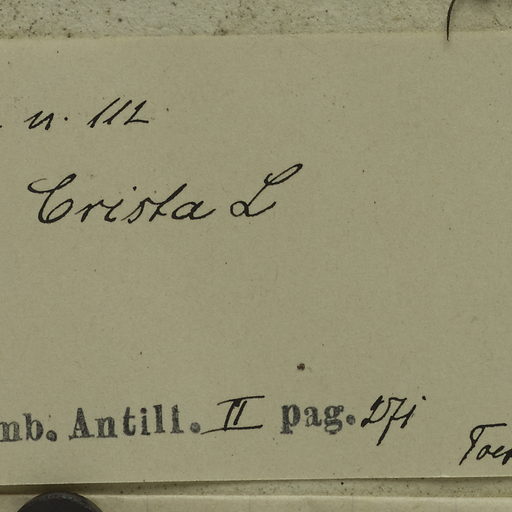 n. 112
Crista L
mb. Antill. II pag. 271